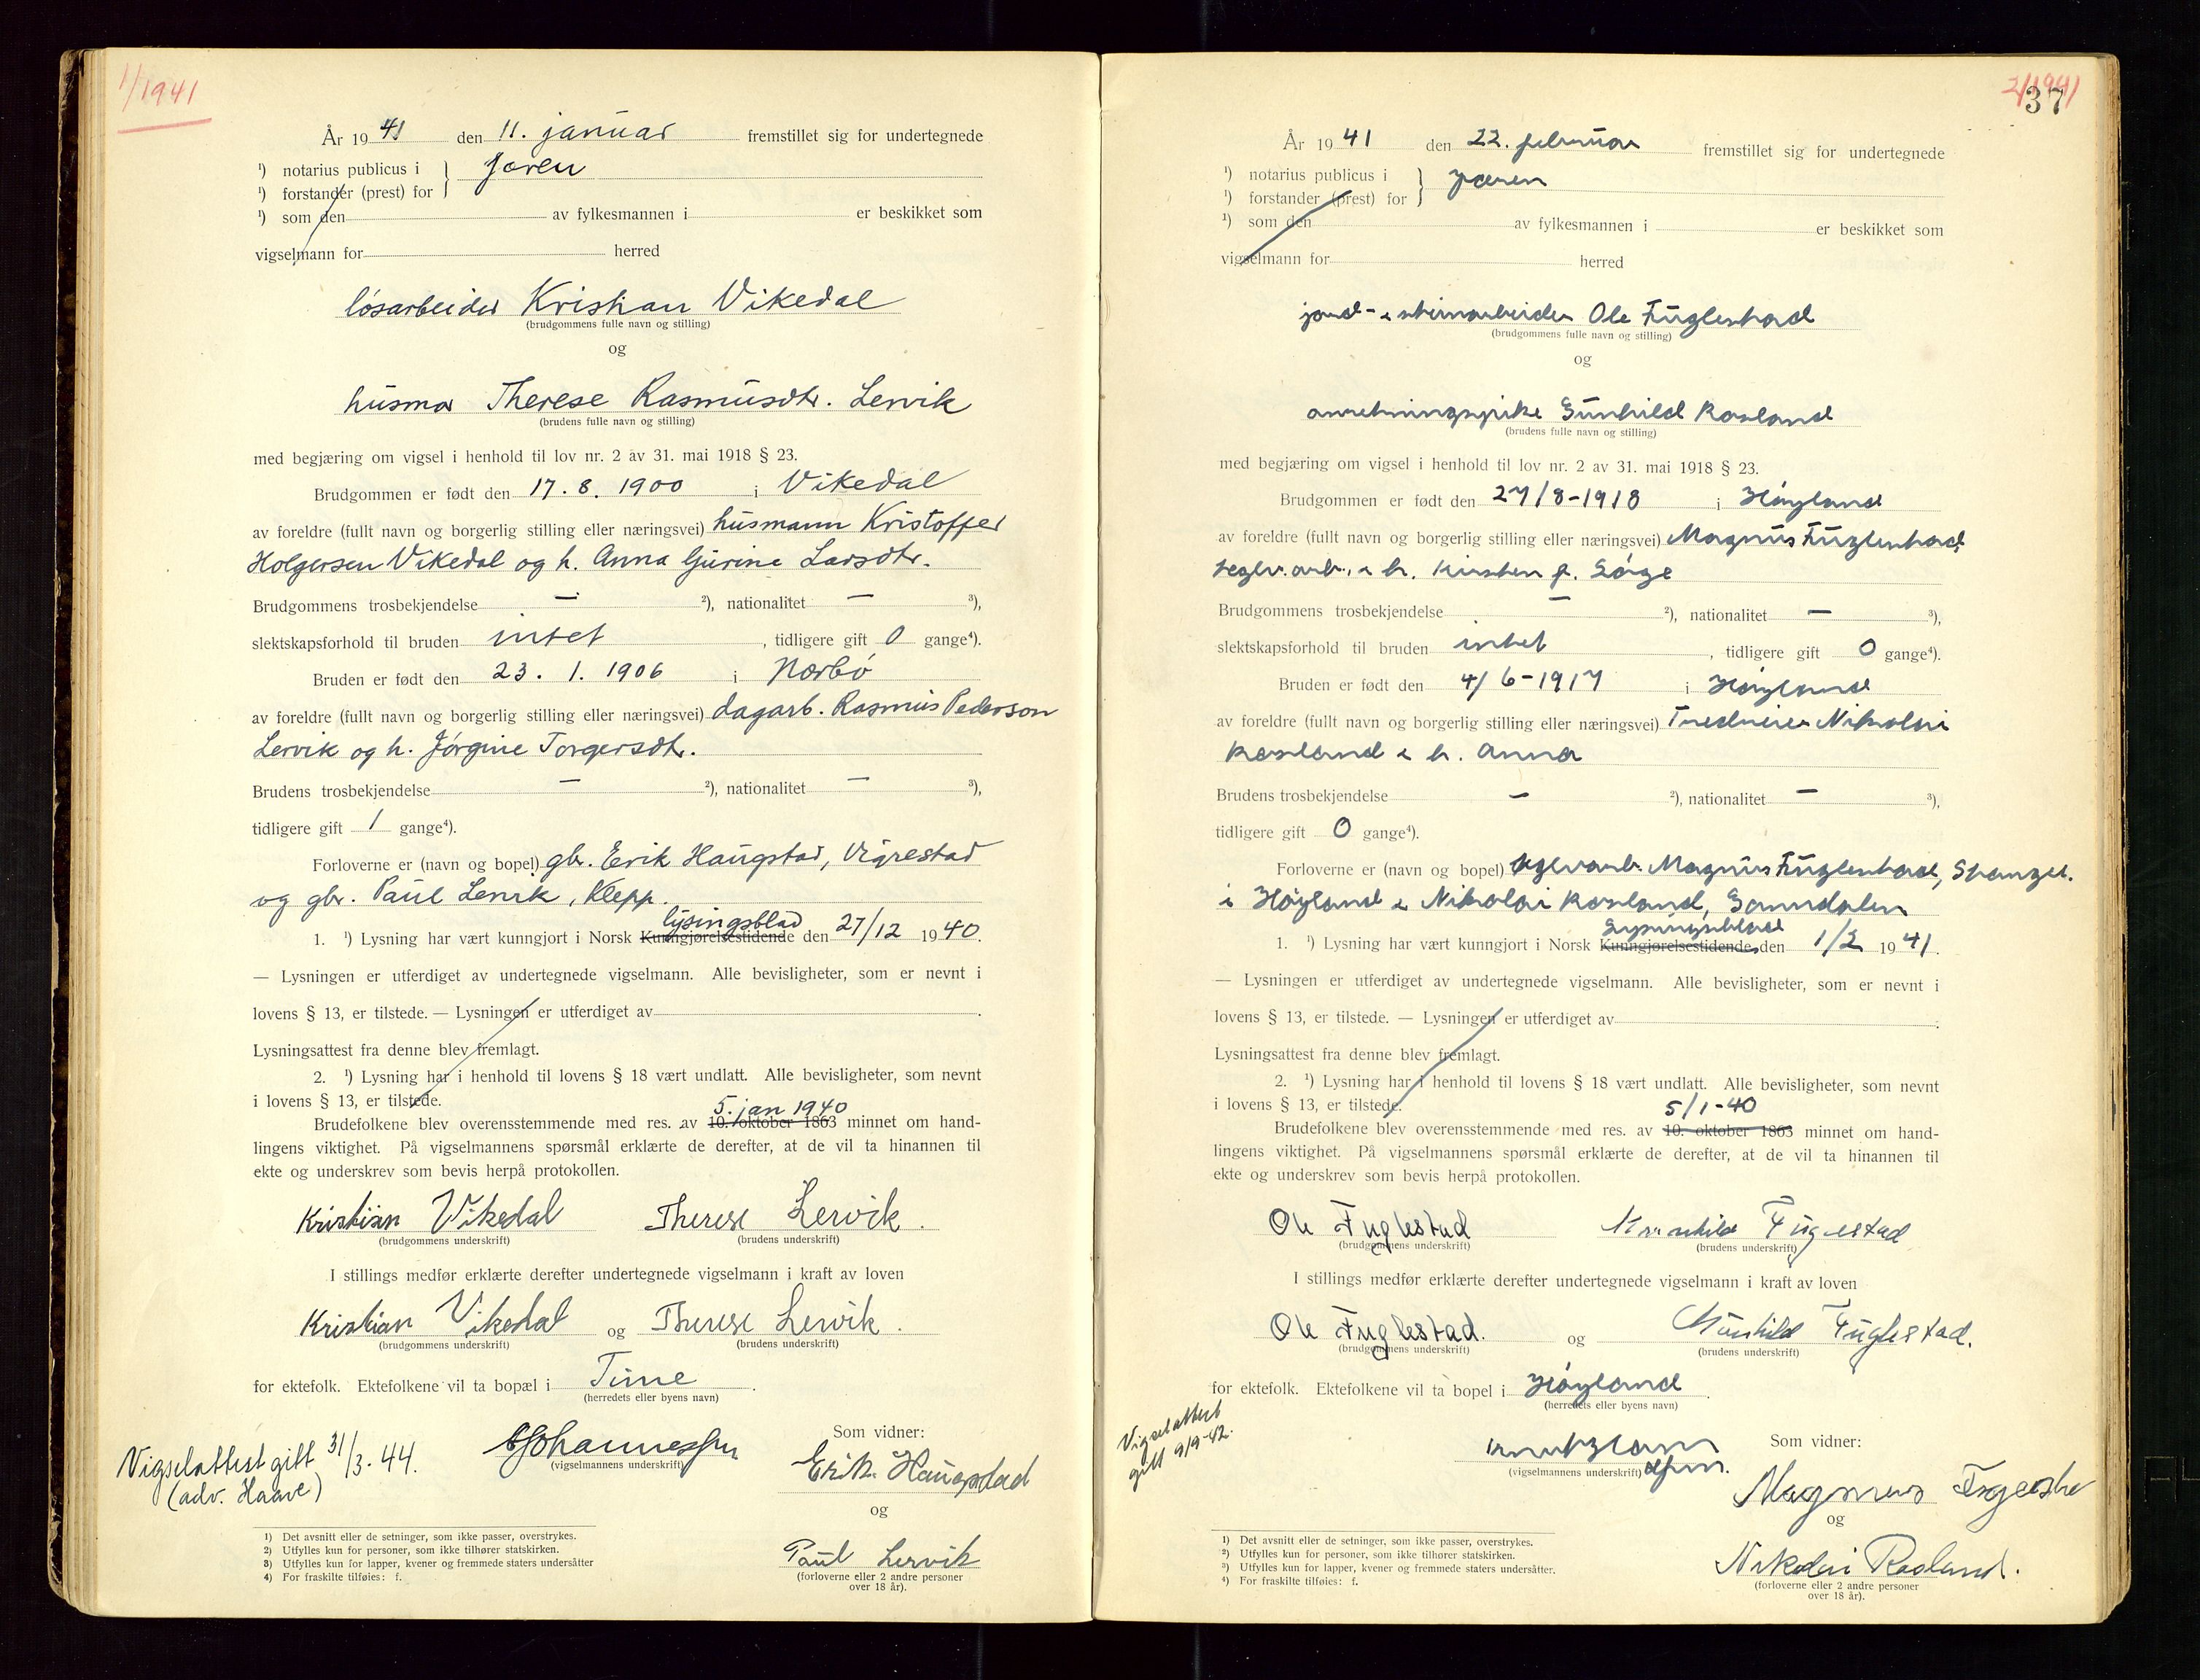 1/1941
År 1941 den 11. januar fremstillet sig for undertegnede
¹) notarius publicus i } Jæren
¹) forstander (prest) for
¹) som den av fylkesmannen i er beskikket som
vigselmann for herred
løsarbeider Kristian Vikedal
(brudgommens fulle navn og stilling)
og
husmor Therese Rasmusdtr. Lervik
(brudens fulle navn og stilling)
med begjæring om vigsel i henhold til lov nr. 2 av 31. mai 1918 § 23.
Brudgommen er født den 17. 8. 1900 i Vikedal
av foreldre (fullt navn og borgerlig stilling eller næringsvei) husmann Kristoffer
Holgersen Vikedal og h. Anna Gurine Larsdtr.
Brudgommens trosbekjendelse — ²), nationalitet — ³),
slektskapsforhold til bruden intet, tidligere gift 0 gange⁴).
Bruden er født den 23. 1. 1906 i Nærbø
av foreldre (fullt navn og borgerlig stilling eller næringsvei) dagarb. Rasmus Pederson
Lervik og h. Jørgine Torgersdtr.
Brudens trosbekjendelse — ²), nationalitet — ³),
tidligere gift 1 gange⁴).
Forloverne er (navn og bopel) gbr. Erik Haugstad, Vigrestad
og gbr. Paul Lervik, Klepp.
lysingsblad
1. ¹) Lysning har vært kunngjort i Norsk Kunngjørelsestidende den 27/12 1940.
— Lysningen er utferdiget av undertegnede vigselmann. Alle bevisligheter, som er nevnt i
lovens § 13, er tilstede. — Lysningen er utferdiget av
Lysningsattest fra denne blev fremlagt.
2. ¹) Lysning har i henhold til lovens § 18 vært undlatt. Alle bevisligheter, som nevnt
i lovens § 13, er tilstede.
5. jan 1940
Brudefolkene blev overensstemmende med res. av 10. oktober 1863 minnet om hand-
lingens viktighet. På vigselmannens spørsmål erklærte de derefter, at de vil ta hinannen til
ekte og underskrev som bevis herpå protokollen.
Kristian Vikedal Therese Lervik.
(brudgommens underskrift) (brudens underskrift)
I stillings medfør erklærte derefter undertegnede vigselmann i kraft av loven
Kristian Vikedal og Therese Lervik.
(brudgommens underskrift) (brudens underskrift)
for ektefolk. Ektefolkene vil ta bopæl i Time.
(herredets eller byens navn)
Vigselattest gitt 31/3-44.
(adv. Haave)
(vigselmannens underskrift)
Som vidner:
Erik Haugstad
og
Paul Lervik
(forloverne eller 2 andre personer
over 18 år).
1) Det avsnitt eller de setninger, som ikke passer, overstrykes.
2) Utfylles kun for personer, som ikke tilhører statskirken.
3) Utfylles kun for lapper, kvener og fremmede staters undersåtter
4) For fraskilte tilføies: f.
2/1941
37
År 1941 den 22. februar fremstillet sig for undertegnede
¹) notarius publicus i } Jæren
¹) forstander (prest) for
¹) som den av fylkesmannen i er beskikket som
vigselmann for herred
jord- & steinarbeider Ole Fuglestad
(brudgommens fulle navn og stilling)
og
anretningspike Gunhild Rosland
(brudens fulle navn og stilling)
med begjæring om vigsel i henhold til lov nr. 2 av 31. mai 1918 § 23.
Brudgommen er født den 27/8-1918 i Høyland
av foreldre (fullt navn og borgerlig stilling eller næringsvei) Magnus Fuglestad,
teglv.arb., & h. Kirsten f. Sørge
Brudgommens trosbekjendelse — ²), nationalitet — ³),
slektskapsforhold til bruden intet, tidligere gift 0 gange⁴).
Bruden er født den 4/6-1917 i Høyland
av foreldre (fullt navn og borgerlig stilling eller næringsvei) Tredreier Nikolai
Rosland & h. Anna
Brudens trosbekjendelse — ²), nationalitet — ³),
tidligere gift 0 gange⁴).
Forloverne er (navn og bopel) teglv.arb. Magnus Fuglestad, Stangel.
i Høyland & Nikolai Rosland, Ganndalen
Lysingsblad
1. ¹) Lysning har vært kunngjort i Norsk Kunngjørelsestidende den 1/2 1941.
— Lysningen er utferdiget av undertegnede vigselmann. Alle bevisligheter, som er nevnt i
lovens § 13, er tilstede. — Lysningen er utferdiget av
Lysningsattest fra denne blev fremlagt.
2. ¹) Lysning har i henhold til lovens § 18 vært undlatt. Alle bevisligheter, som nevnt
i lovens § 13, er tilstede.
5/1-40
Brudefolkene blev overensstemmende med res. av 10. oktober 1863 minnet om hand-
lingens viktighet. På vigselmannens spørsmål erklærte de derefter, at de vil ta hinannen til
ekte og underskrev som bevis herpå protokollen.
Ole Fuglestad Gunhild Fuglestad
(brudgommens underskrift) (brudens underskrift)
I stillings medfør erklærte derefter undertegnede vigselmann i kraft av loven
Ole Fuglestad. og Gunhild Fuglestad.
(brudgommens underskrift) (brudens underskrift)
for ektefolk. Ektefolkene vil ta bopel i Høyland.
(herredets eller byens navn)
Vigselattest
gitt 9/9-42.
(vigselmannens underskrift)
Som vidner:
Magnus
og
Nikolai Rosland.
(forloverne eller 2 andre personer
over 18 år).
1) Det avsnitt eller de setninger, som ikke passer, overstrykes.
2) Utfylles kun for personer, som ikke tilhører statskirken.
3) Utfylles kun for lapper, kvener og fremmede staters undersåtter.
4) For fraskilte tilføies: f.